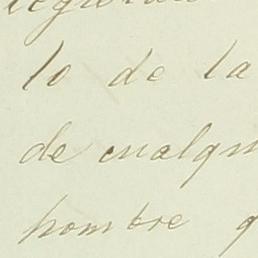 lo de la
de cualqu
hombre q